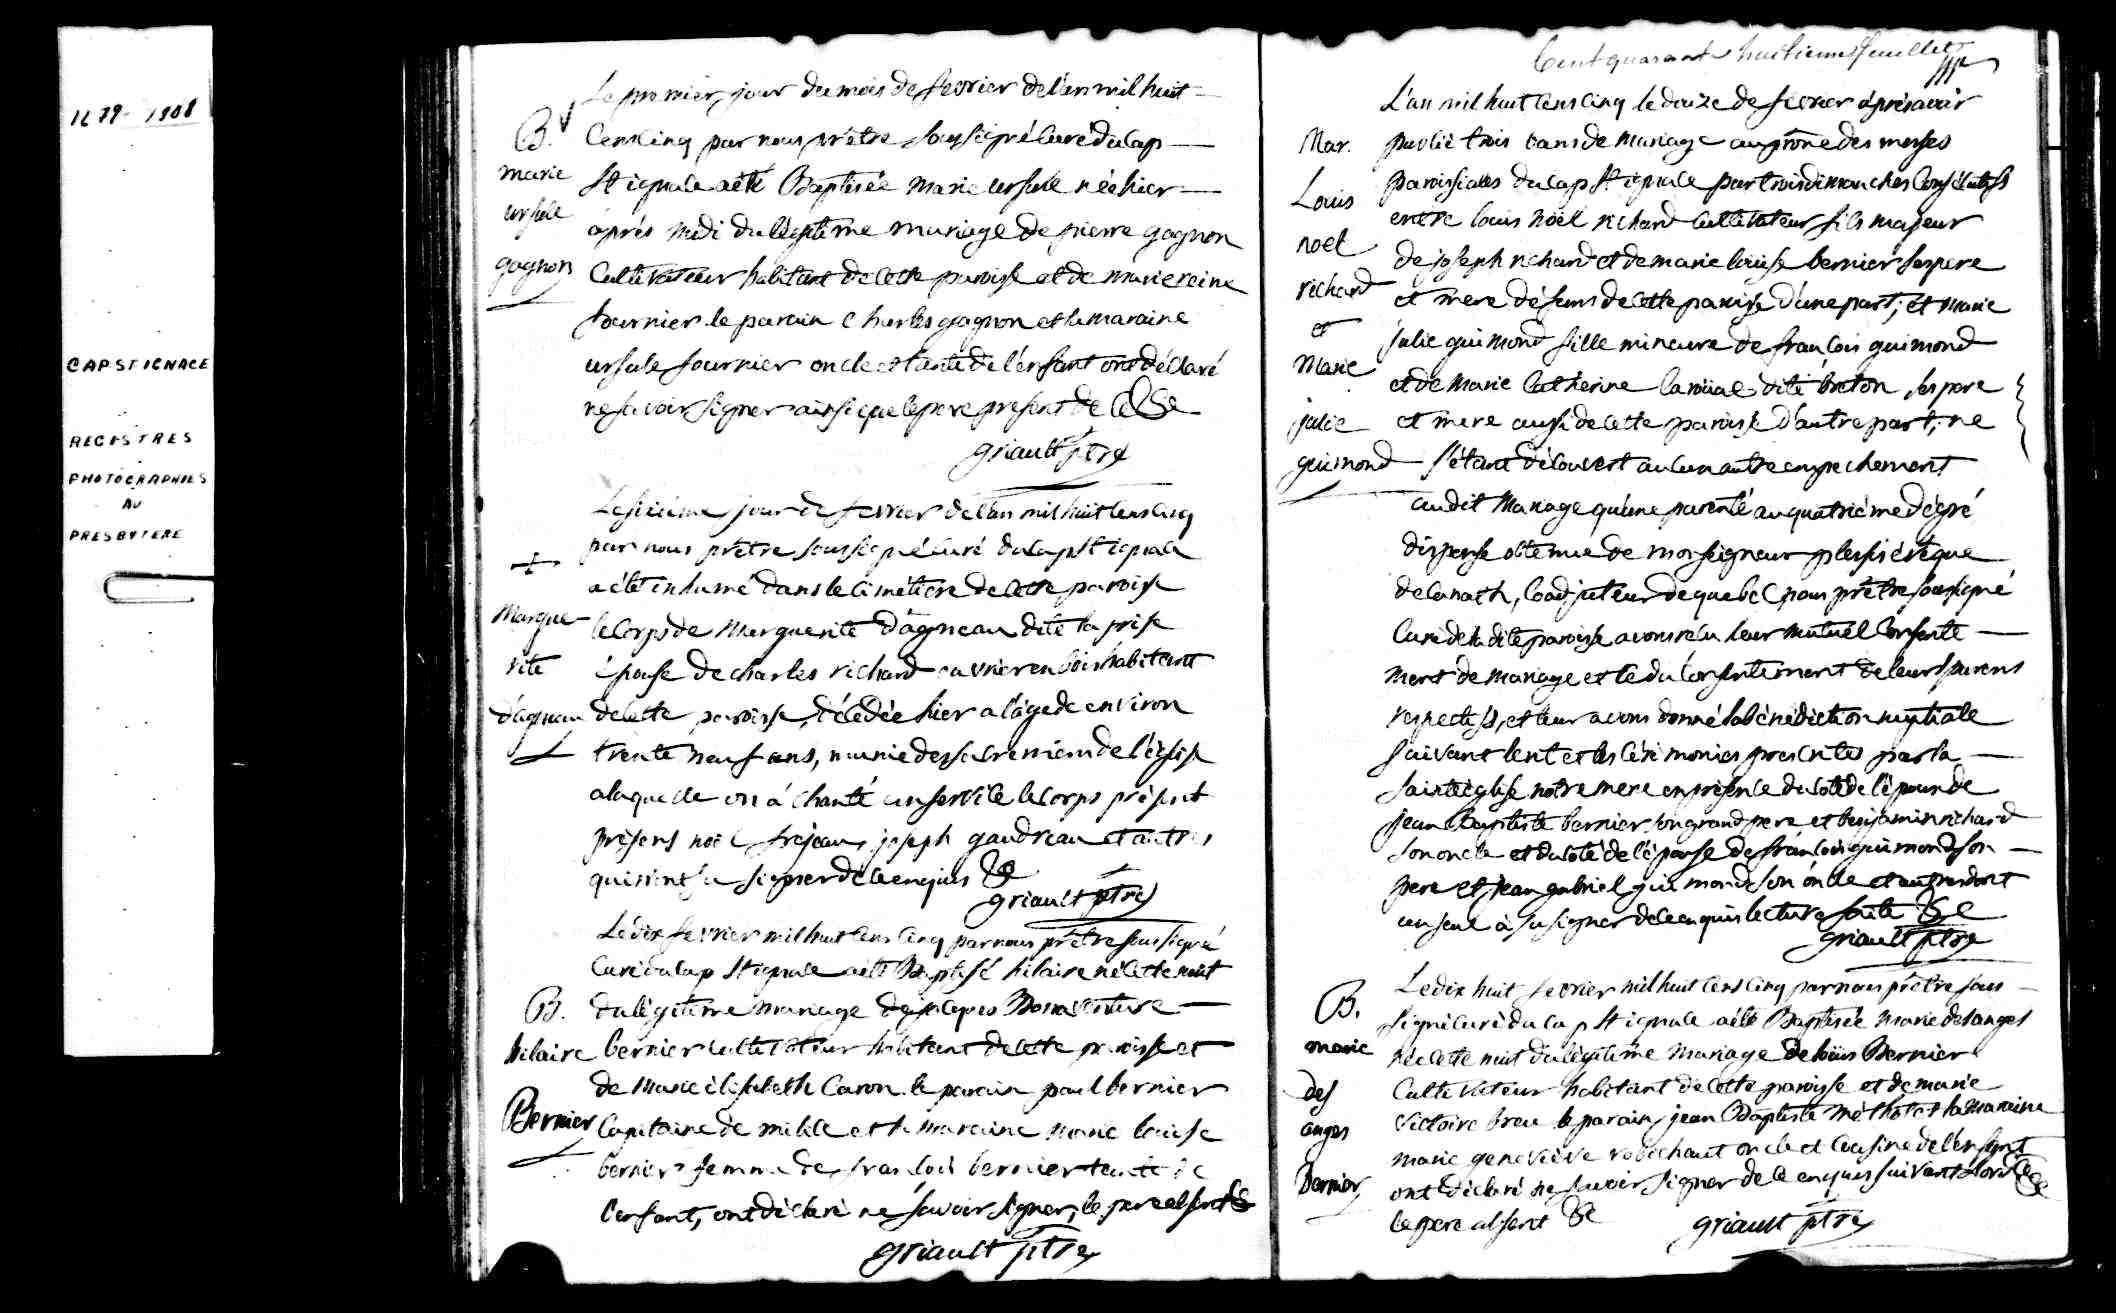 1679 - 1908
CAP ST IGNACE
REGISTRES
PHOTOGRAPHIES
AU
PRESBYTERE
Le premier jour du mois de fevrier de l'an mil huit
B. cens cinq par nous prêtre soussigné curé du cap
marie St ignace a été Baptisée marie ursule née hier
ursule après midi du légitime mariage de pierre gagnon
gagnon cultivateur habitant de cette paroisse et de marie reine
fournier le parain charles gagnon et la maraine
ursule fournier oncle et tante de l'enfant ont déclaré
ne savoir signer ainsi que le pere present de ce &c
griault ptre
Le sixième jour de fevrier de l'an mil huit cens cinq
par nous prêtre soussigné curé du cap St ignace
+ a été inhumé dans le cimétiere de cette paroisse
Margue le corps de Marguerite d'agneau dite la prise
rite épouse de charles richard ouvrier en bois habitant
d'agneau de cette paroisse, décédée hier a l'âge de environ
trente neuf ans, munie des sacremens de l'église
a laquelle on a chanté un service le corps présent
présens noël frejeau, joseph gaudreau et autres
qui n'ont su signer de ce enquis &c
griault ptre
Le dix fevrier mil huit cens cinq par nous prêtre soussigné
curé du cap St ignace a été Baptisé hilaire né cette nuit
B. du légitime mariage de jacques Bonaventure
hilaire bernier cultivateur habitant de cette paroisse et
de Marie élisabeth Caron le parain paul bernier
Bernier Capitaine de milice et la maraine marie louise
bernier femme de françois bernier tante de
l'enfant, ont déclaré ne savoir signer, le pere absent &c
griault ptre
Cent quarante huitieme feuillet
L'an mil huit cens cinq le douze de fevrier après avoir
Mar. publié trois bans de mariage au prône des messes
Louis paroissiales du cap St ignace par trois dimanches consécutifs
noel entre louis noël richard cultivateur fils majeur
de joseph richard et de marie louise bernier ses pere
richard et mere défuns de cette paroisse d'une part; et marie
et julie guimond fille mineure de françois guimond
Marie et de Marie Catherine dite breton ses pere
julie et mere aussi de cette paroisse d'autre part; ne
guimond s'étant découvert aucun autre empechement
au dit Mariage qu'une parenté au quatrième dégré
dispense obtenue de monseigneur plessis évêque
de canath, coadjuteur de quebec nous prêtre soussigné
curé de la dite paroisse avons reçu leur mutuel consente
ment de mariage et le du consentement de leurs parens
respectifs, et leur avons donné la bénédiction nuptiale
suivant le rit et les cérémonies prescrites par la
sainte église notre mere en présence du coté de l'époux de
jean Baptiste bernier son grand pere et benjamin richard
son oncle et du coté de l'épouse de françois guimond son
pere et jean gabriel guimond son oncle et autres dont
un seul a su signer de ce enquis lecture faite &c
griault ptre
Le dix huit fevrier mil huit cens cinq par nous prêtre sous
B. signé curé du cap St ignace a été Baptisée Marie des anges
marie née cette nuit du légitime Mariage de louis Bernier
des Cultivateur habitant de cette paroisse et de marie
anges victoire breu le parain jean Baptiste méthot et la maraine
marie geneviève robichaut oncle et cousine de l'enfant
bernier ont déclaré ne savoir signer de ce enquis suivant l'ord &c
le pere absent &c
griault ptre